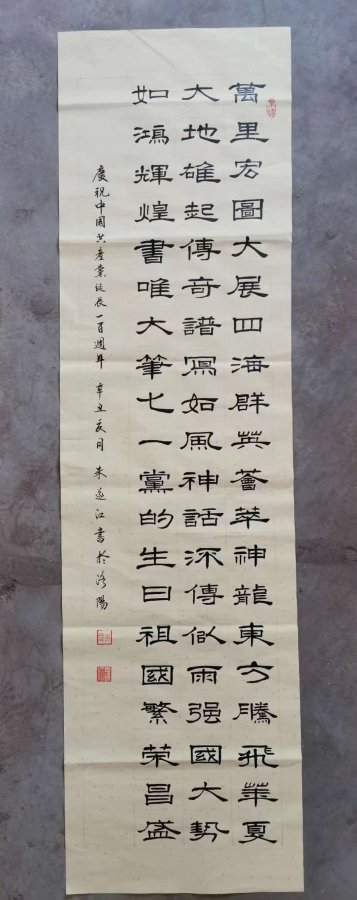 萬里宏圖大展四海群英薈萃神龍東方騰飛華夏
大地雄起傳奇譜寫如風神話深傳似雨强國大勢
如鴻輝煌書唯大筆七一黨的生日祖國繁荣昌盛
慶祝中國共產黨誕辰一百週年 辛丑夏月 朱遂江書於洛陽